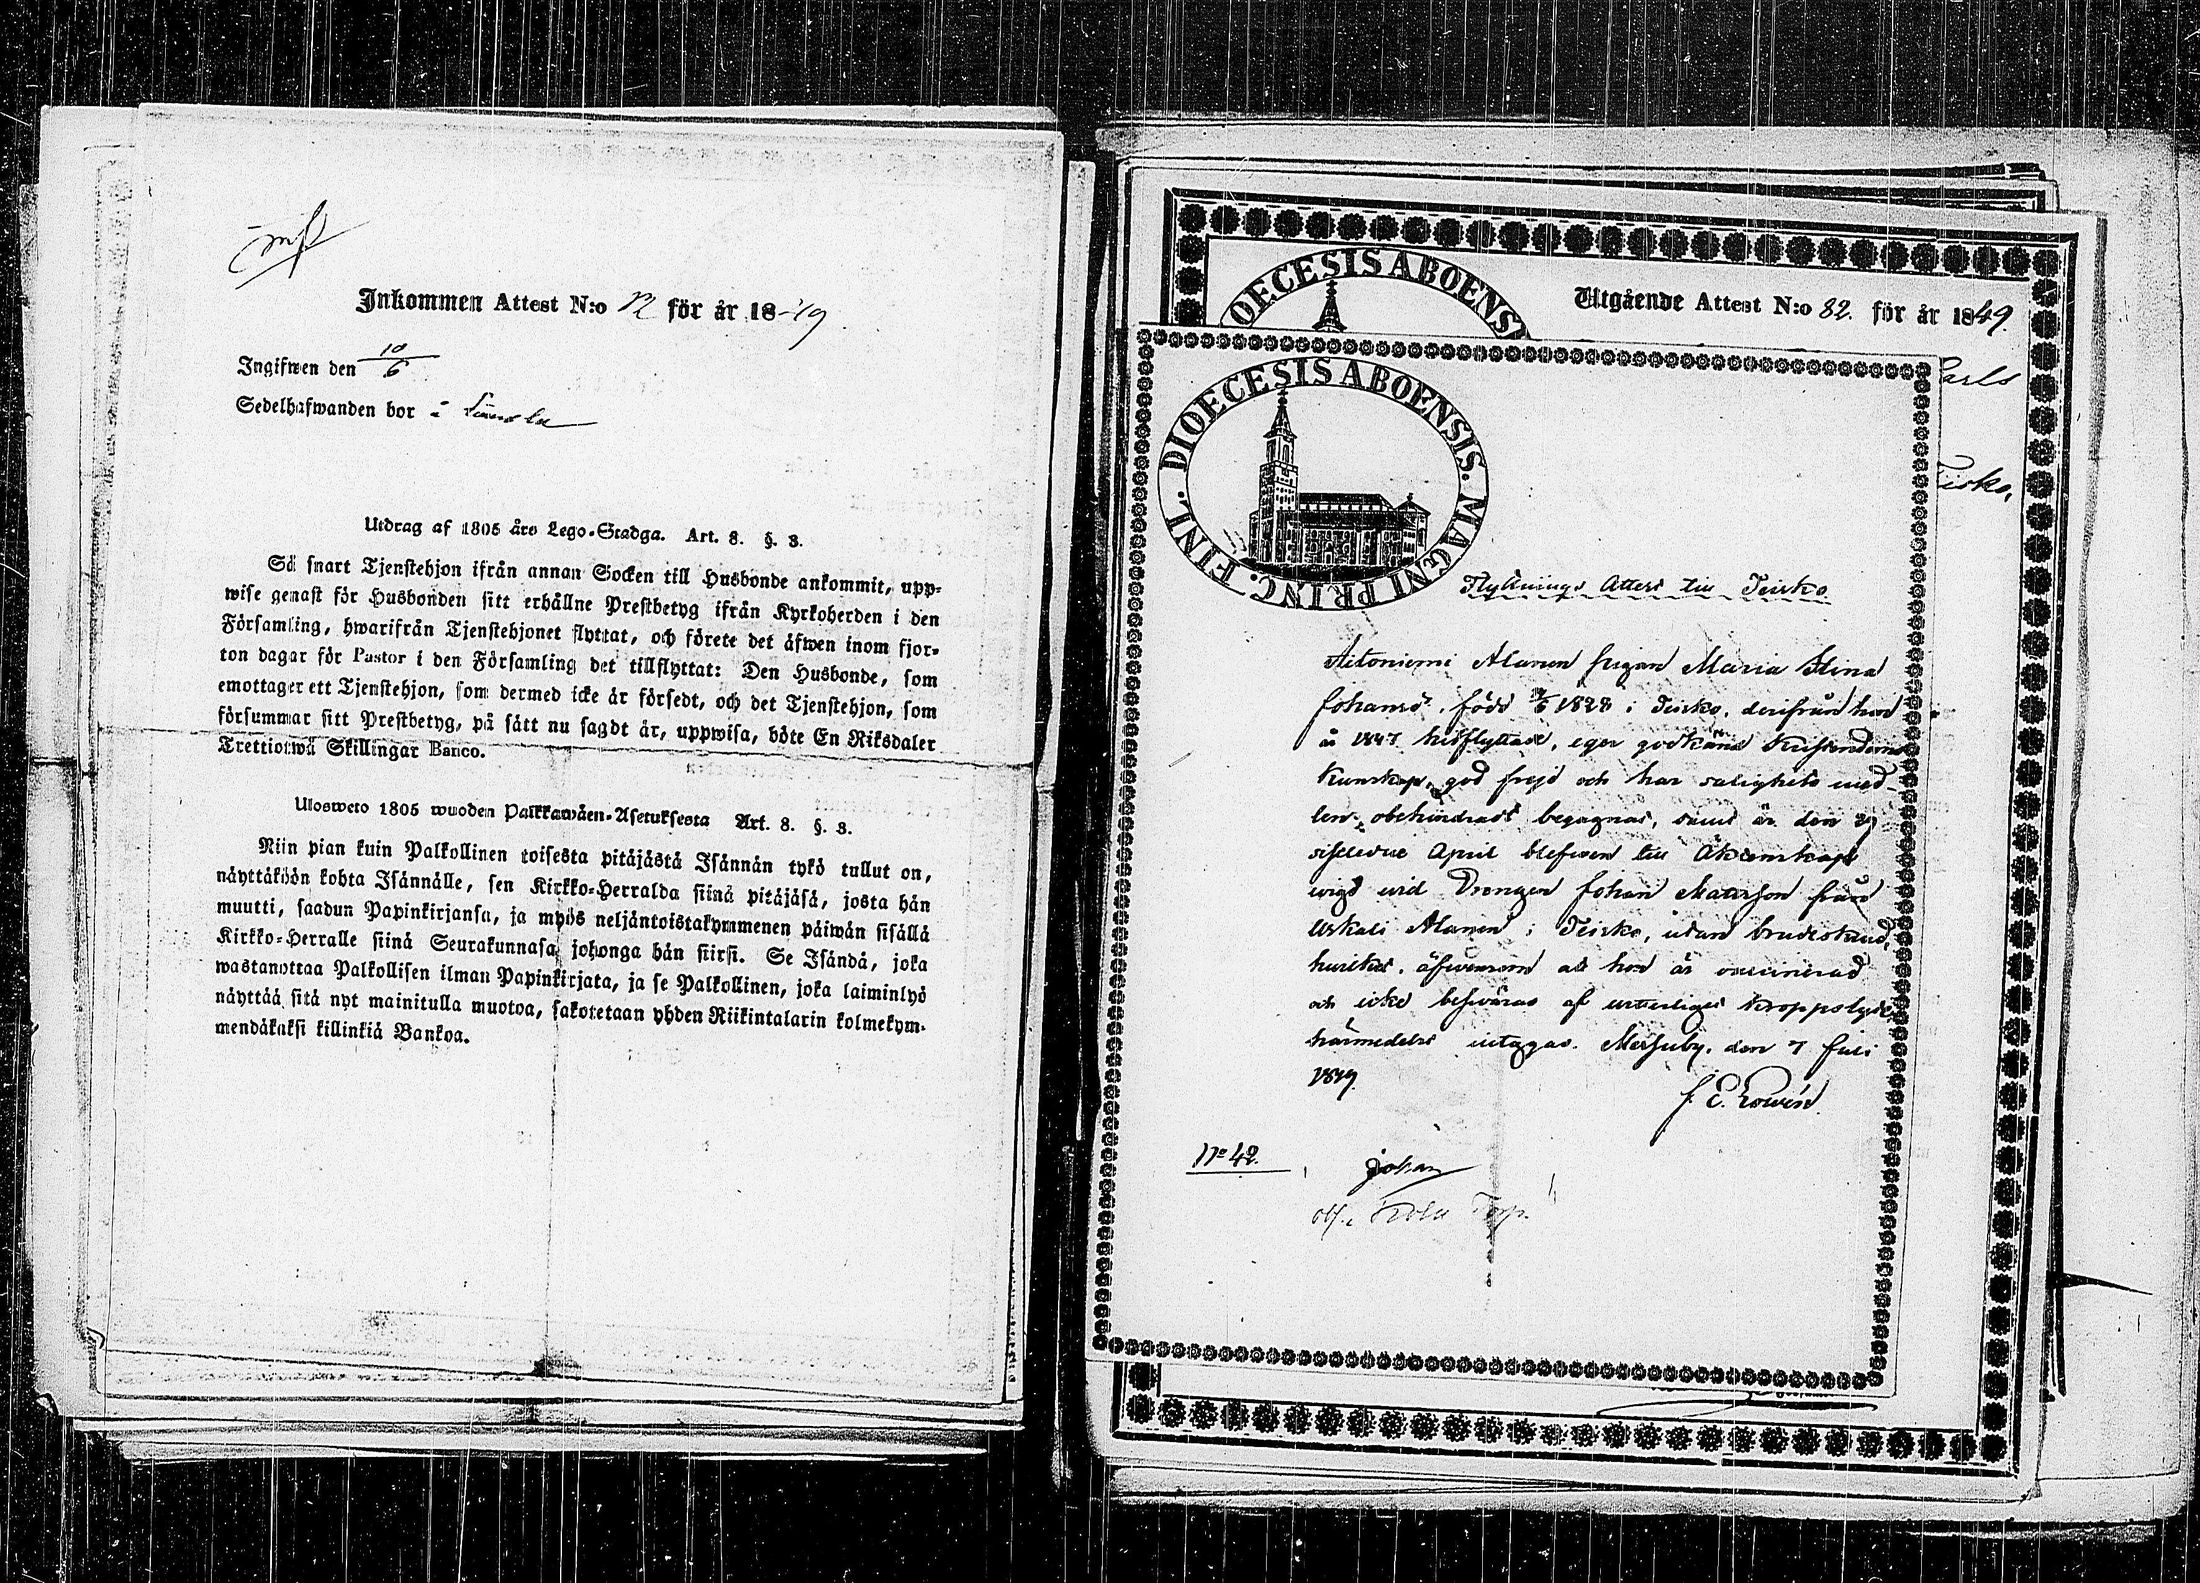 Inkommen Attest N:o 12 för år 18-49
Ingifwen den 10/6
Sedelhafwanden bor i
Utdrag af 1805 års Lego-Stadga. Art. 8. §. 3.
Så snart Tjenstehjon ifrån annan Socken till Husbonde ankommit, upp-
wise genast för Husbonden sitt erhållne Prestbetyg ifrån Kyrkoherden i den
Församling, hwarifrån Tjenstehjonet flyttat, och förete det äfwen inom fjor-
ton dagar för Pastor i den Församling det tillflyttat: Den Husbonde, som
emottager ett Tjenstehjon, som dermed icke är försedt, och det Tjenstehjon, som
försummar sitt Prestbetyg, på sätt nu sagdt är, uppwisa, böte En Riksdaler
Trettiotwå Skillingar Banco.
Ulosweto 1805 wuoden Palkkawäen-Asetuksesta Art. 8. §. 3.
Niin pian kuin Palkollinen toisesta pitäjästä Isännän tykö tullut on,
näyttäköön kohta Isännälle, sen Kirkko-Herralda siinä pitäjäsä, josta hän
muutti, saadun Papinkirjansa, ja myös neljäntoistakymmenen päiwän sisällä
Kirkko-Herralle siinä Seurakunnasa, johonga hän siirsi. Se Isändä, joka
wastanottaa Palkollisen ilman Papinkirjata, ja se Palkollinen, joka laiminlyö
näyttää sitä nyt mainitulla muotoa, sakotetaan yhden Riikintalarin kolmekym-
mendäkaksi killinkiä Bankoa.
Utgående Attest N:o 82. för år 1849.
DIOECESIS ABOENS
Carls
Teisko,
DIOECESIS ABOENSIS. MAGNI PRINC. FINL.
Flyttnings Attest till Teisko
Aitoniemi Alanen pigan Maria Stina
Johansd:r, född 1828 i Teisko, derifrån hon
år 1847 hitflyttade, eger godkänd Kristendoms
Kunskap, god frejd och har salighets med-
len obehindradt begagnat, samt är den 29
sistledne April blefwen till Äktenskap
wigd wid Drengen Johan Matsson från
Uskali Alanen i Teisko, utan brudeskrud,
hwilket, äfwensom att hon är vaccinerad
och icke beswäras af urterliges Kroppslyte,
härmedelst intygas. Messuby, den 7 Juli
1849.
J. E. Rowén
N:o 42.
Johan